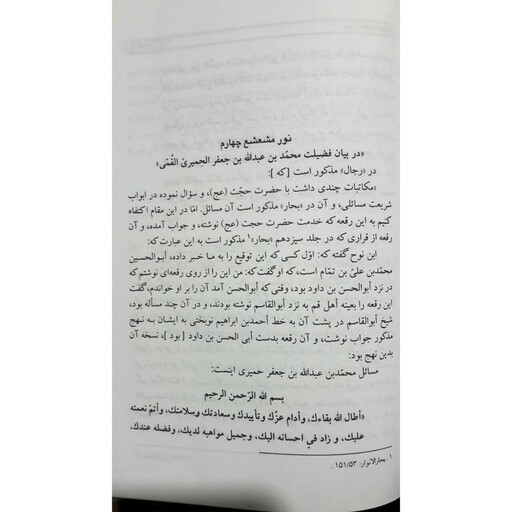 نور مشعشع چهارم
«در بیان فضیلت محمّد بن عبدالله بن جعفر الحِمیریّ القُمّی»
در «رجال» مذکور است [که ]:
«مکاتبات چندی داشت با حضرت حجّت (عج)، و سؤال نموده در ابواب
شریعت مسائلی، و آن در «بحار» مذکور است آن مسائل. امّا در این مقام اکتفاء
کنیم به این رقعه که خدمت حضرت حجت (عج) نوشته، و جواب آمده، و آن
رقعه از قراری که در جلد سیزدهم «بحار»۱ مذکور است به این عبارت که:
ابن نوح گفته که: اوّل کسی که این توقیع را به ما خبر داده، أبوالحسین
محمّدبن علیّ بن تمام است، که او گفت که: من این را از روی رقعه‌ای نوشتم که
در نزد أبوالحسن بن داود بود، وقتی که أبوالحسن آمد آن را بر او خواندم، گفت
این رقعه را بعینه أهل قم به نزد أبوالقاسم نوشته بودند، و در آن چند مسأله بود،
شیخ أبوالقاسم در پشت آن به خط احمدبن ابراهیم نوبختی به ایشان به نهج
مذکور جواب نوشت، و آن رقعه بدست أبی الحسن بن داود [بود ]، نسخه آن
بدین نهج بود:
مسائل محمّدبن عبدالله بن جعفر حمیری اینست:
بسم الله الرّحمن الرحیم
«أطال الله بقاءك، وأدام عزّك وتأییدك وسعادتك وسلامتك، وأتمّ نعمته
علیك، و زاد في احسانه الیك، وجمیل مواهبه لدیك، وفضله عندك،
۱. بحارالانوار: ۱۵۱/۵۳ .